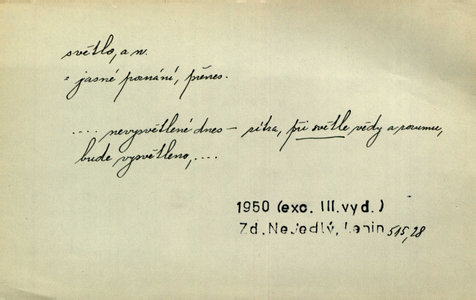 světlo, a n.
= jasné poznání, přenes.
.... nevysvětlené dnes – zítra, při světle vědy a rozumu,
bude vysvětleno, ....
1950 (exc. III. vyd.)
Zd. Nejedlý, Lenin 515, 28